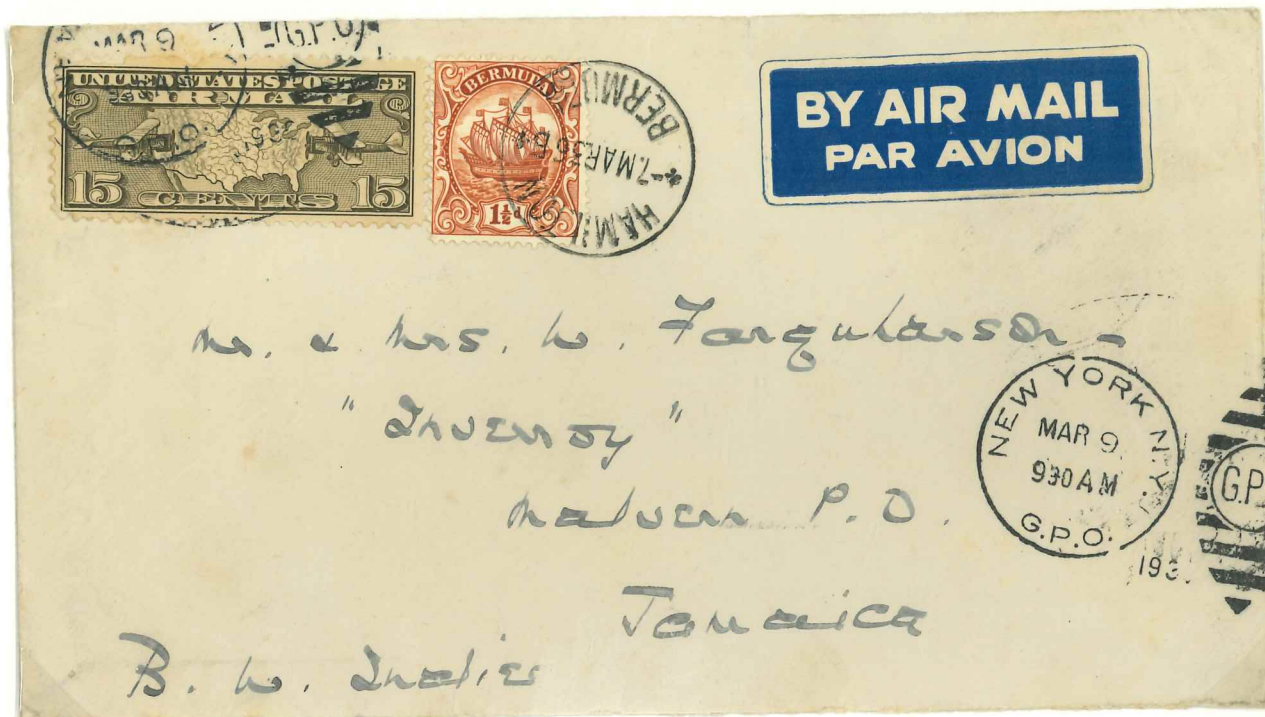 UNITED STATES POSTAGE
AIR MAIL
15 CENTS 15
BERMUDA
1½d
HAMILTON
7 MAR 36
BERMUDA
BY AIR MAIL
PAR AVION
Mr. & Mrs. W. Farquharson -
"Inverroy"
Malvern P.O.
Jamaica
B. W. Indies
NEW YORK N.Y.
MAR 9
930 AM
G.P.O.
193
G.P